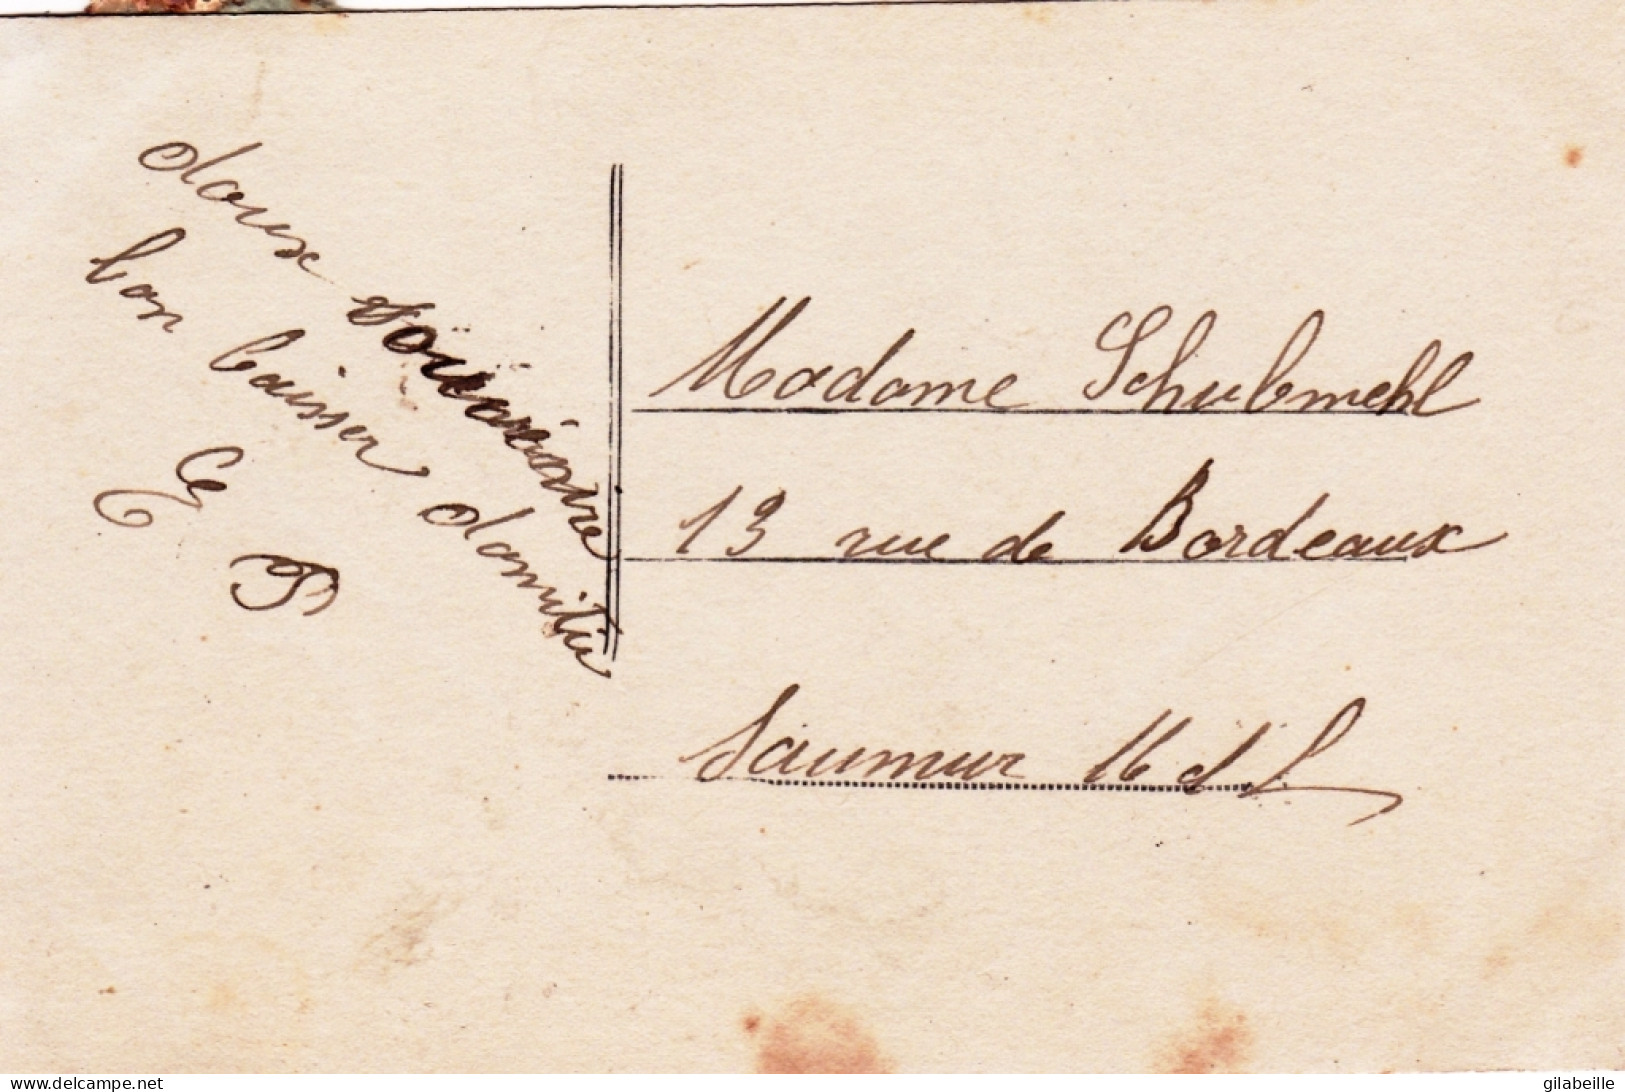 doux
bon baisser d'amitié
E P
Madame Schubmehl
13 rue de Bordeaux
Saumur M d L
www.delcampe.net
gilabeille